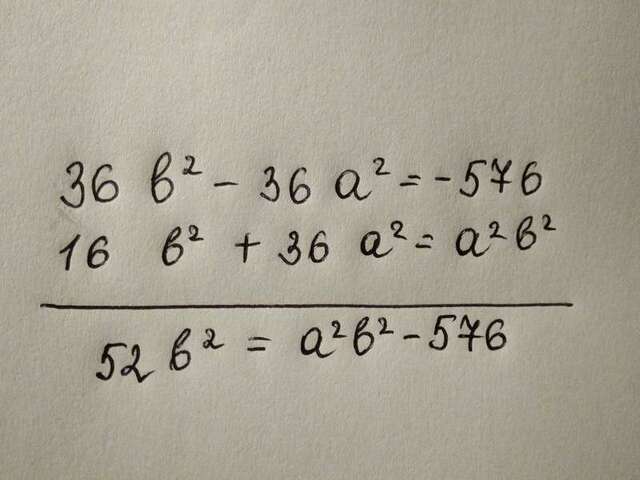 36 b² - 36 a² = -576
16 b² + 36 a² = a²b²
52 b² = a²b² - 576